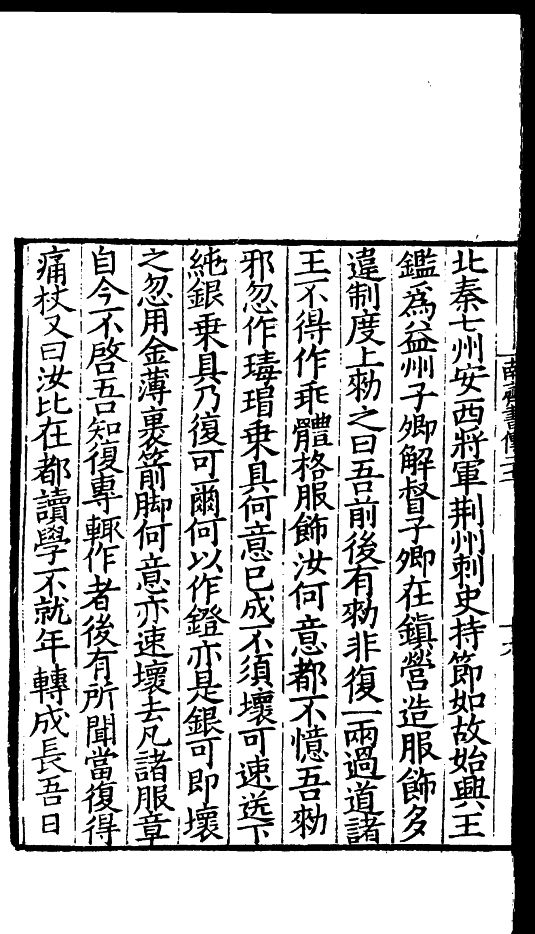 南齊書傳二十一
北秦七州安西將軍荆州刺史持節如故始興王
鑑爲益州子卿解督子卿在鎮營造服飾多
違制度上勑之曰吾前後有勑非復一兩過道諸
王不得作乖體格服飾汝何意都不憶吾勑
邪忽作瑇瑁乗具何意已成不須壞可速送下
純銀乗具乃復可爾何以作鐙亦是銀可即壞
之忽用金薄裹箭脚何意亦速壞去凡諸服章
自今不啓吾知復專輒作者後有所聞當復得
痛杖又曰汝比在都讀學不就年轉成長吾日